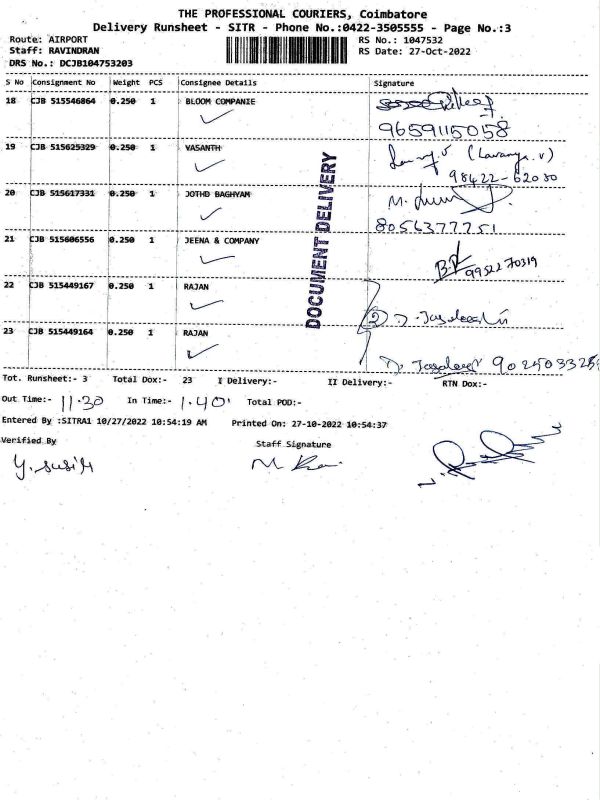 THE PROFESSIONAL COURIERS, Coimbatore
Delivery Runsheet - SITR - Phone No.:0422-3505555 - Page No.:3
Route: AIRPORT RS No.: 1047532
Staff: RAVINDRAN RS Date: 27-Oct-2022
DRS No.: DCJB104753203
S No Consignment No Weight PCS Consignee Details Signature
18 CJB 515546864 0.250 1 BLOOM COMPANIE
9659115058
19 CJB 515625329 0.250 1 VASANTH (Lavanya.v)
98422-62080
20 CJB 515617331 0.250 1 JOTHD BAGHYAM M.
8056377251
21 CJB 515606556 0.250 1 JEENA & COMPANY
9952270319
22 CJB 515449167 0.250 1 RAJAN
2
23 CJB 515449164 0.250 1 RAJAN
DOCUMENT DELIVERY
Tot. Runsheet:- 3 Total Dox:- 23 I Delivery:- II Delivery:- RTN Dox:-
Out Time:- 11.30 In Time:- 1.40 Total POD:-
Entered By :SITRA1 10/27/2022 10:54:19 AM Printed On: 27-10-2022 10:54:37
Verified By Staff Signature